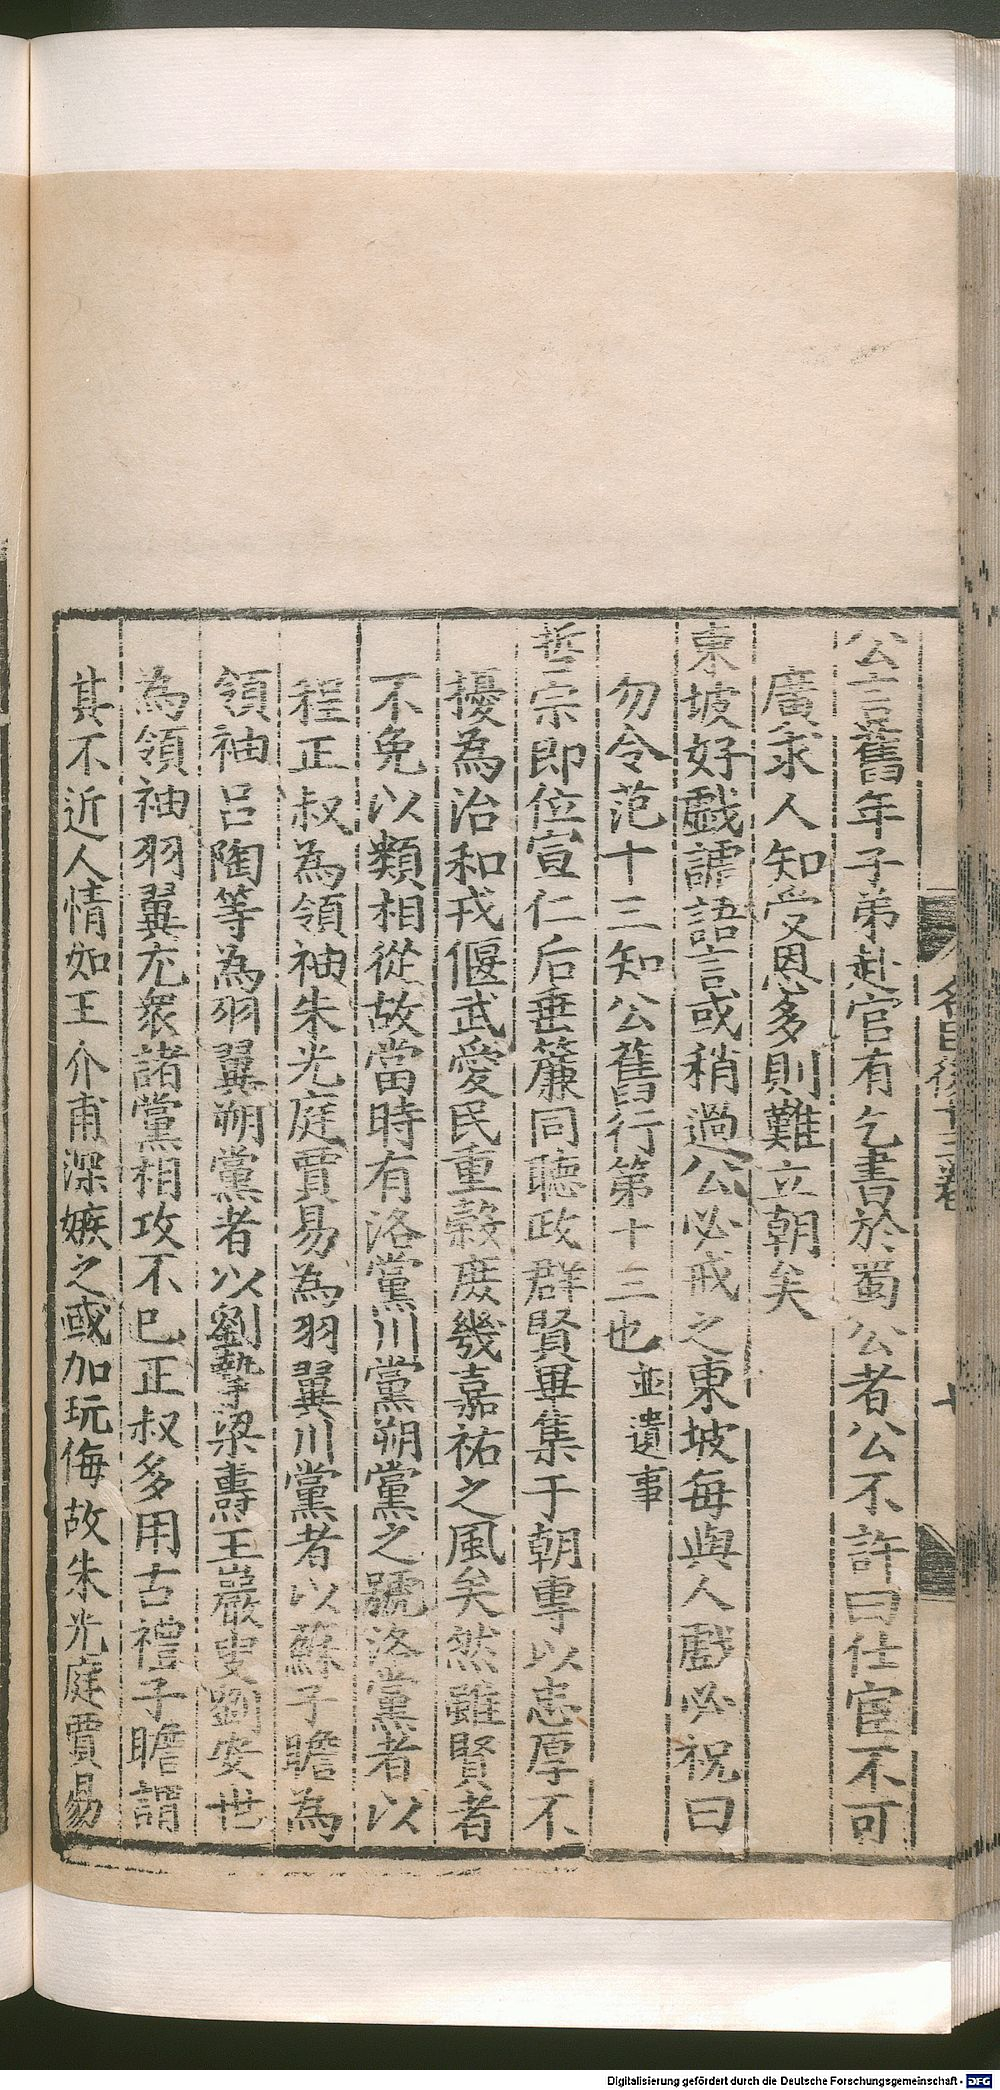 公言舊年子弟赴官有乞書於蜀公者公不許曰仕宦不可
廣求人知受恩多則難立朝矣
東坡好戲謔語言或稍過公必戒之東坡每與人戲必祝曰
勿令范十三知公舊行第十三也並遺事
哲宗即位宣仁后垂簾同聽政群賢畢集于朝專以忠厚不
擾為治和戎偃武愛民重穀庶幾嘉祐之風矣然雖賢者
不免以類相從故當時有洛黨川黨朔黨之號洛黨者以
程正叔為領袖朱光庭賈易為羽翼川黨者以蘇子瞻為
領袖呂陶等為羽翼朔黨者以劉摯梁燾王巖叟劉安世
為領袖羽翼尤衆諸黨相攻不已正叔多用古禮子瞻謂
其不近人情如王介甫深嫉之或加玩侮故朱光庭賈易
Digitalisierung gefördert durch die Deutsche Forschungsgemeinschaft - DFG